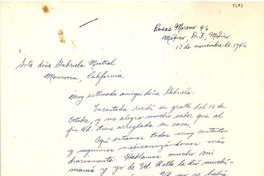 Rosas Moreno 46
México, D.F., México
13 de noviembre de 1946
Srta. doña Gabriela Mistral
Monrovia, California
Muy estimada amiga doña Gabriela:
Encantada recibí su grata del 16 de
Octubre, y me alegro mucho saber que al
fin Ud. tiene arreglada su casa!
Aquí estamos todos muy contentos
y seguimos mexicanizándonos más
diariamente. Hablamos mucho
mamá y yo de Ud.